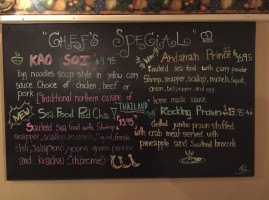 "CHEF'S SPECIAL"
KAO SOI $9.95
Egg noodles soup style in yellow curry
sauce Choice of chicken, beef or
pork
[Traditional northern cuisine of
THAILAND
NEW!
Sea Food Pad Cha
$13.95
Sauteed Sea food with Shrimp
snapper, scallop, mussel, squid, fresh
chili, Jalapeno, young green pepper
and krachai (rhizome)
Andaman Prince
Sauteed sea food with curry powder
Shrimp, snapper, scallop, mussels, Squid,
onion, bell pepper, and egg
home made sauce
Rocking Prawn
Grilled jumbo prawn stuffed
with crab meat served with
pineapple and Sauteed broccoli